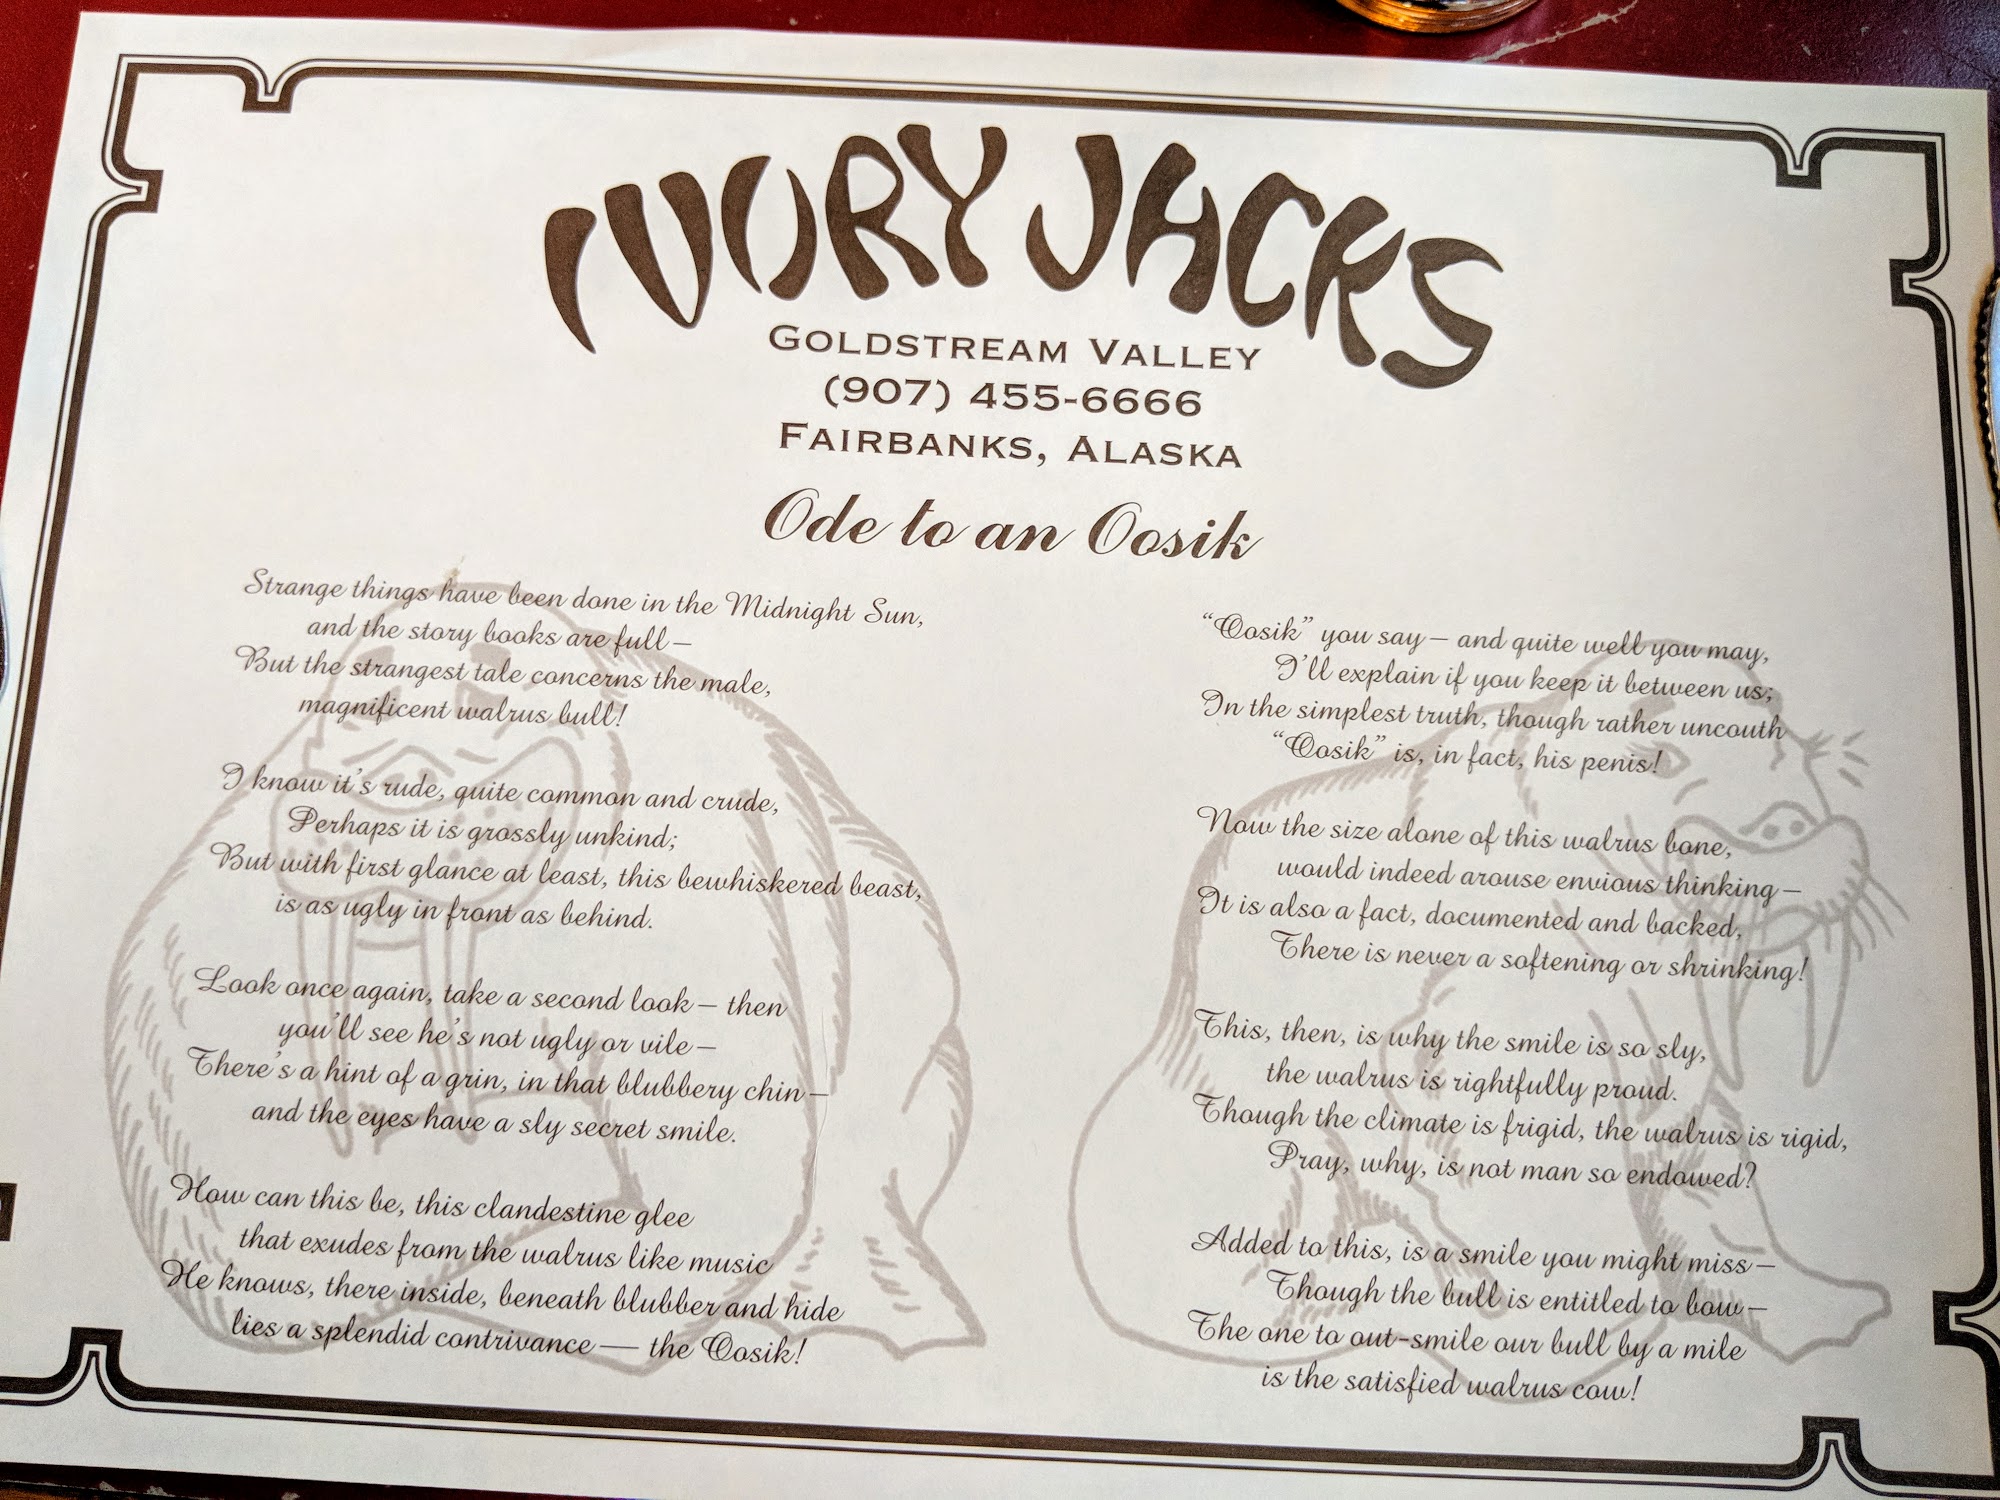 IVORY JACKS
GOLDSTREAM VALLEY
(907) 455-6666
FAIRBANKS, ALASKA
Ode to an Oosik
Strange things have been done in the Midnight Sun,
and the story books are full—
But the strangest tale concerns the male,
magnificent walrus bull!
I know it's rude, quite common and crude,
Perhaps it is grossly unkind;
But with first glance at least, this bewhiskered beast,
is as ugly in front as behind.
Look once again, take a second look— then
you'll see he's not ugly or vile—
There's a hint of a grin, in that blubbery chin—
and the eyes have a sly secret smile.
How can this be, this clandestine glee
that exudes from the walrus like music
He knows, there inside, beneath blubber and hide
lies a splendid contrivance — the Oosik!
"Oosik" you say— and quite well you may,
I'll explain if you keep it between us;
In the simplest truth, though rather uncouth
"Oosik" is, in fact, his penis!
Now the size alone of this walrus bone,
would indeed arouse envious thinking—
It is also a fact, documented and backed,
There is never a softening or shrinking!
This, then, is why the smile is so sly,
the walrus is rightfully proud.
Though the climate is frigid, the walrus is rigid,
Pray, why, is not man so endowed?
Added to this, is a smile you might miss—
Though the bull is entitled to bow—
The one to out-smile our bull by a mile
is the satisfied walrus cow!